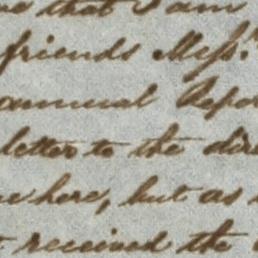 that I am
friends Messrs.
annual Repor
letter to the dire
here, but as
received the